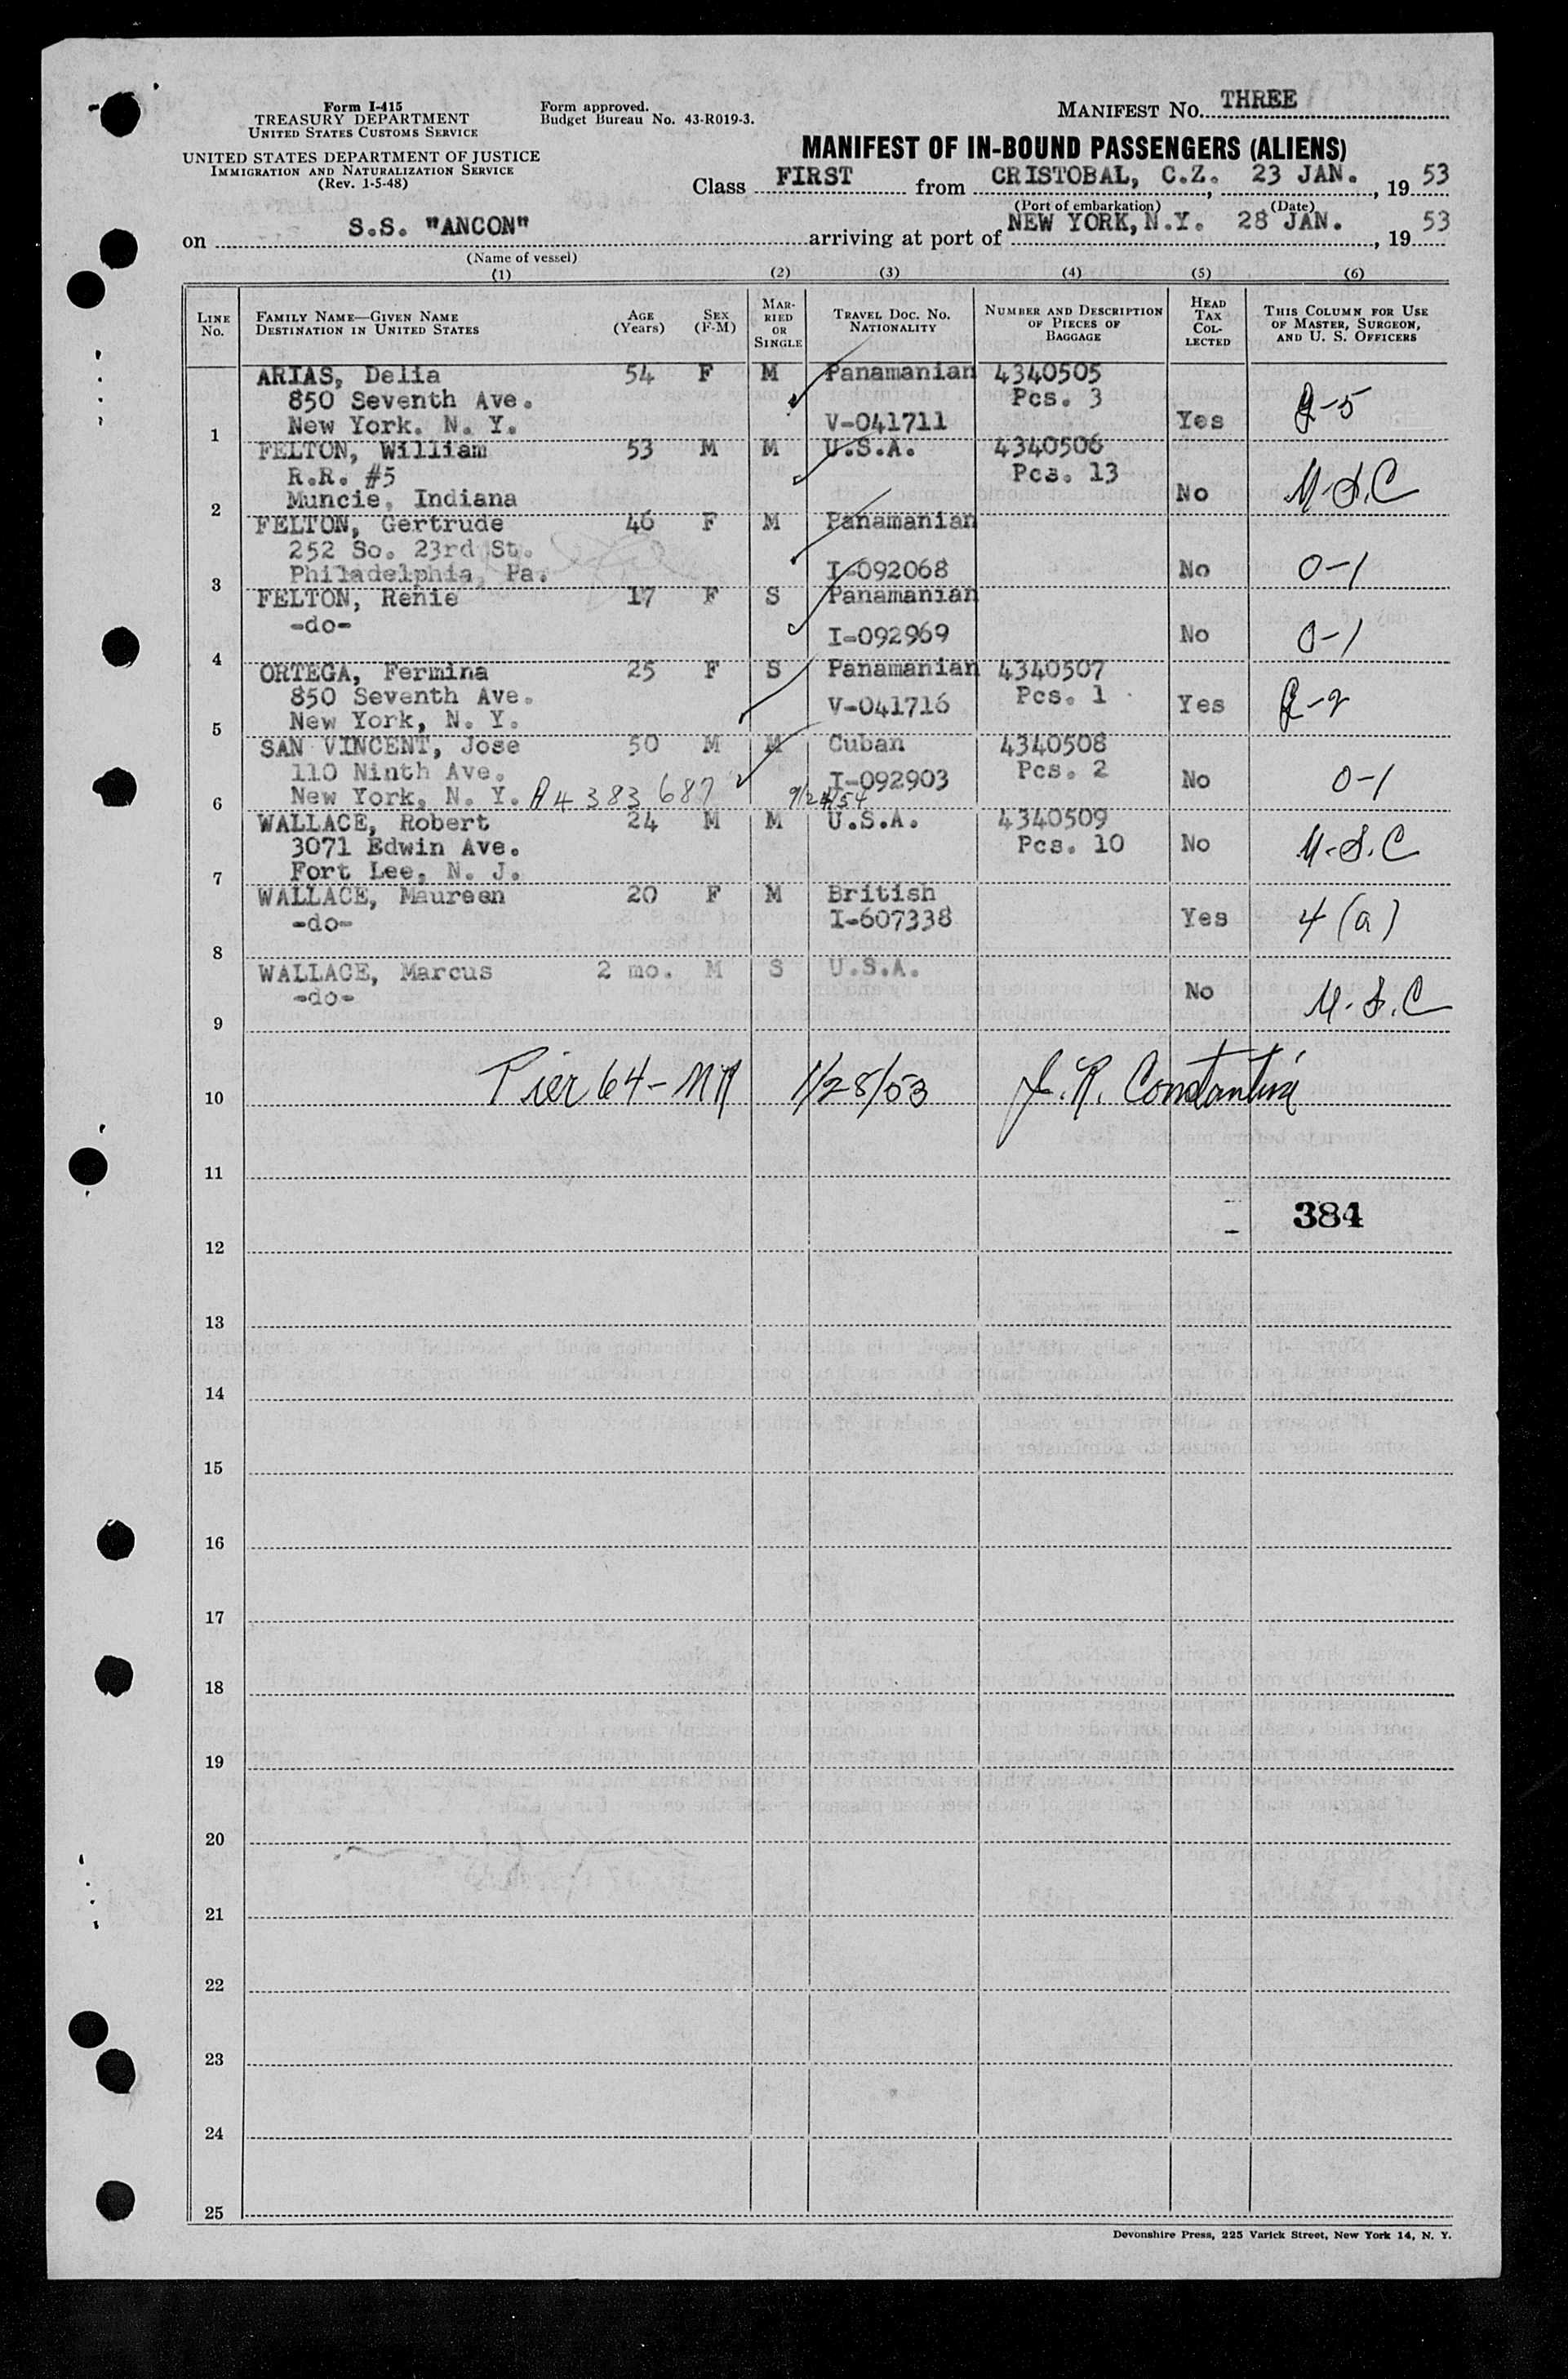 Form I-415
TREASURY DEPARTMENT
UNITED STATES CUSTOMS SERVICE
Form approved.
Budget Bureau No. 43-R019-3.
MANIFEST No. THREE
UNITED STATES DEPARTMENT OF JUSTICE
IMMIGRATION AND NATURALIZATION SERVICE
(Rev. 1-5-48)
MANIFEST OF IN-BOUND PASSENGERS (ALIENS)
Class FIRST from CRISTOBAL, C.Z., 23 JAN., 19 53
(Port of embarkation) (Date)
on S.S. "ANCON" arriving at port of NEW YORK, N.Y. 28 JAN., 19 53
(Name of vessel)
(1) (2) (3) (4) (5) (6)
LINE No. FAMILY NAME—GIVEN NAME DESTINATION IN UNITED STATES AGE (Years) SEX (F-M) MARRIED OR SINGLE TRAVEL DOC. NO. NATIONALITY NUMBER AND DESCRIPTION OF PIECES OF BAGGAGE HEAD TAX COLLECTED THIS COLUMN FOR USE OF MASTER, SURGEON, AND U. S. OFFICERS
ARIAS, Delia 54 F M Panamanian 4340505
850 Seventh Ave. Pcs. 3
1 New York. N. Y. V-041711 Yes -5
FELTON, William 53 M M U.S.A. 4340506
R.R. #5 Pcs. 13
2 Muncie, Indiana No M-S.C
FELTON, Gertrude 46 F M Panamanian
252 So. 23rd St.
3 Philadelphia, Pa. I-092068 No 0-1
FELTON, Renie 17 F S Panamanian
-do-
4 I-092969 No 0-1
ORTEGA, Fermina 25 F S Panamanian 4340507
850 Seventh Ave. Pcs. 1
5 New York, N. Y. V-041716 Yes -2
SAN VINCENT, Jose 50 M M Cuban 4340508
110 Ninth Ave. Pcs. 2
6 New York, N. Y. A4 383 687 9/24/54 I-092903 No 0-1
WALLACE, Robert 24 M M U.S.A. 4340509
3071 Edwin Ave. Pcs. 10 No M-S.C
7 Fort Lee, N. J.
WALLACE, Maureen 20 F M British
-do- I-607338 Yes 4(a)
8
WALLACE, Marcus 2 mo. M S U.S.A.
-do- No M-S.C
9
10 Pier 64-NR 1/28/53 J. R. Constantini
11
384
12
13
14
15
16
17
18
19
20
21
22
23
24
25
Devonshire Press, 225 Varick Street, New York 14, N. Y.